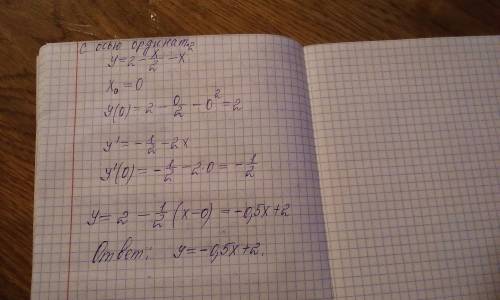 с осью ординат
y=2-x/2-x²
x₀=0
y(0)=2-0/2-0²=2
y'=-1/2-2x
y'(0)=-1/2-2·0=-1/2
y=2-1/2(x-0)=-0,5x+2
Ответ: y=-0,5x+2.